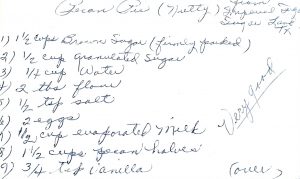 Pecan Pie (Nutty)
from
Imperial
Sugar Land
Tx.
1) 1 1/2 cups Brown Sugar (firmly packed)
2) 1/2 cup granulated Sugar
3) 1/4 cup Water
4) 2 tbs flour
5) 1/2 tsp salt
6) 2 eggs
7) 1/2 cup evaporated Milk
8) 1 1/2 cups pecan halves
9) 3/4 tsp Vanilla
Very good
(over)